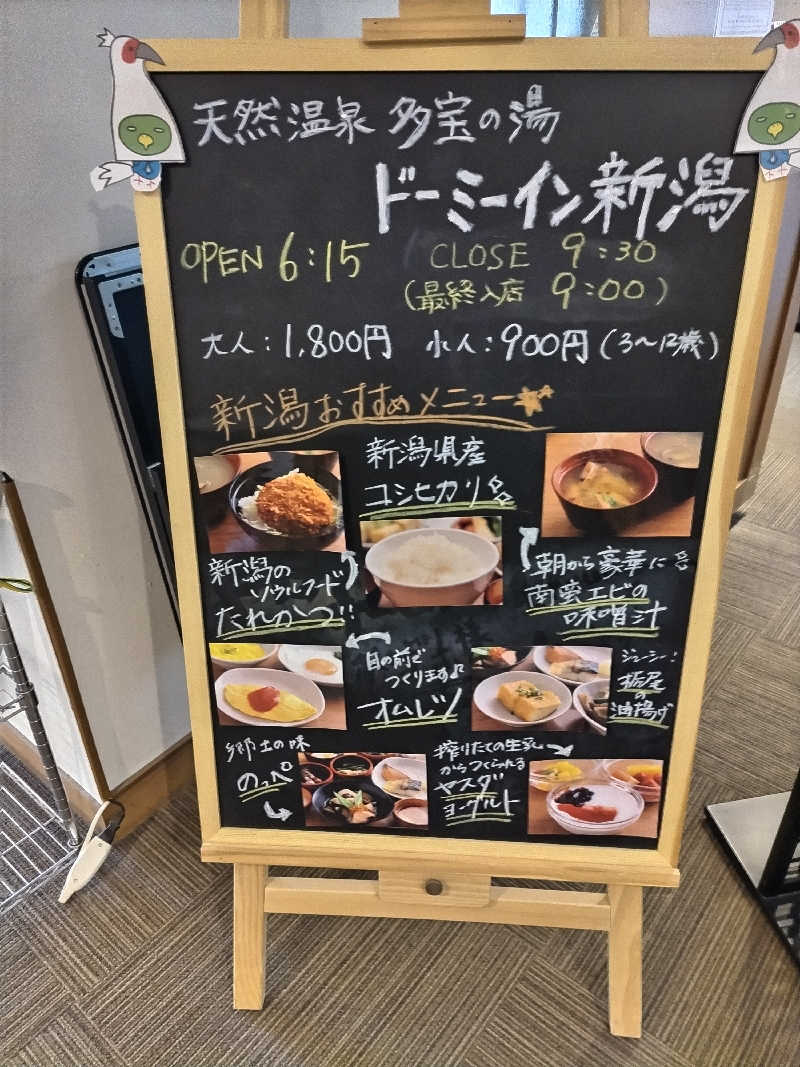 天然温泉 多宝の湯
ドーミーイン新潟
OPEN 6:15 CLOSE 9:30
(最終入店 9:00)
大人:1,800円 小人:900円(3〜12歳)
新潟おすすめメニュー
新潟県産
コシヒカリ
新潟の
ソウルフード
たれかつ!!
朝から豪華に
南蛮エビの
味噌汁
目の前で
つくります♪
オムレツ
ジューシー!
栃尾
の
油揚げ
郷土の味
のっペ
搾りたての生乳
からつくられる
ヤスダ
ヨーグルト